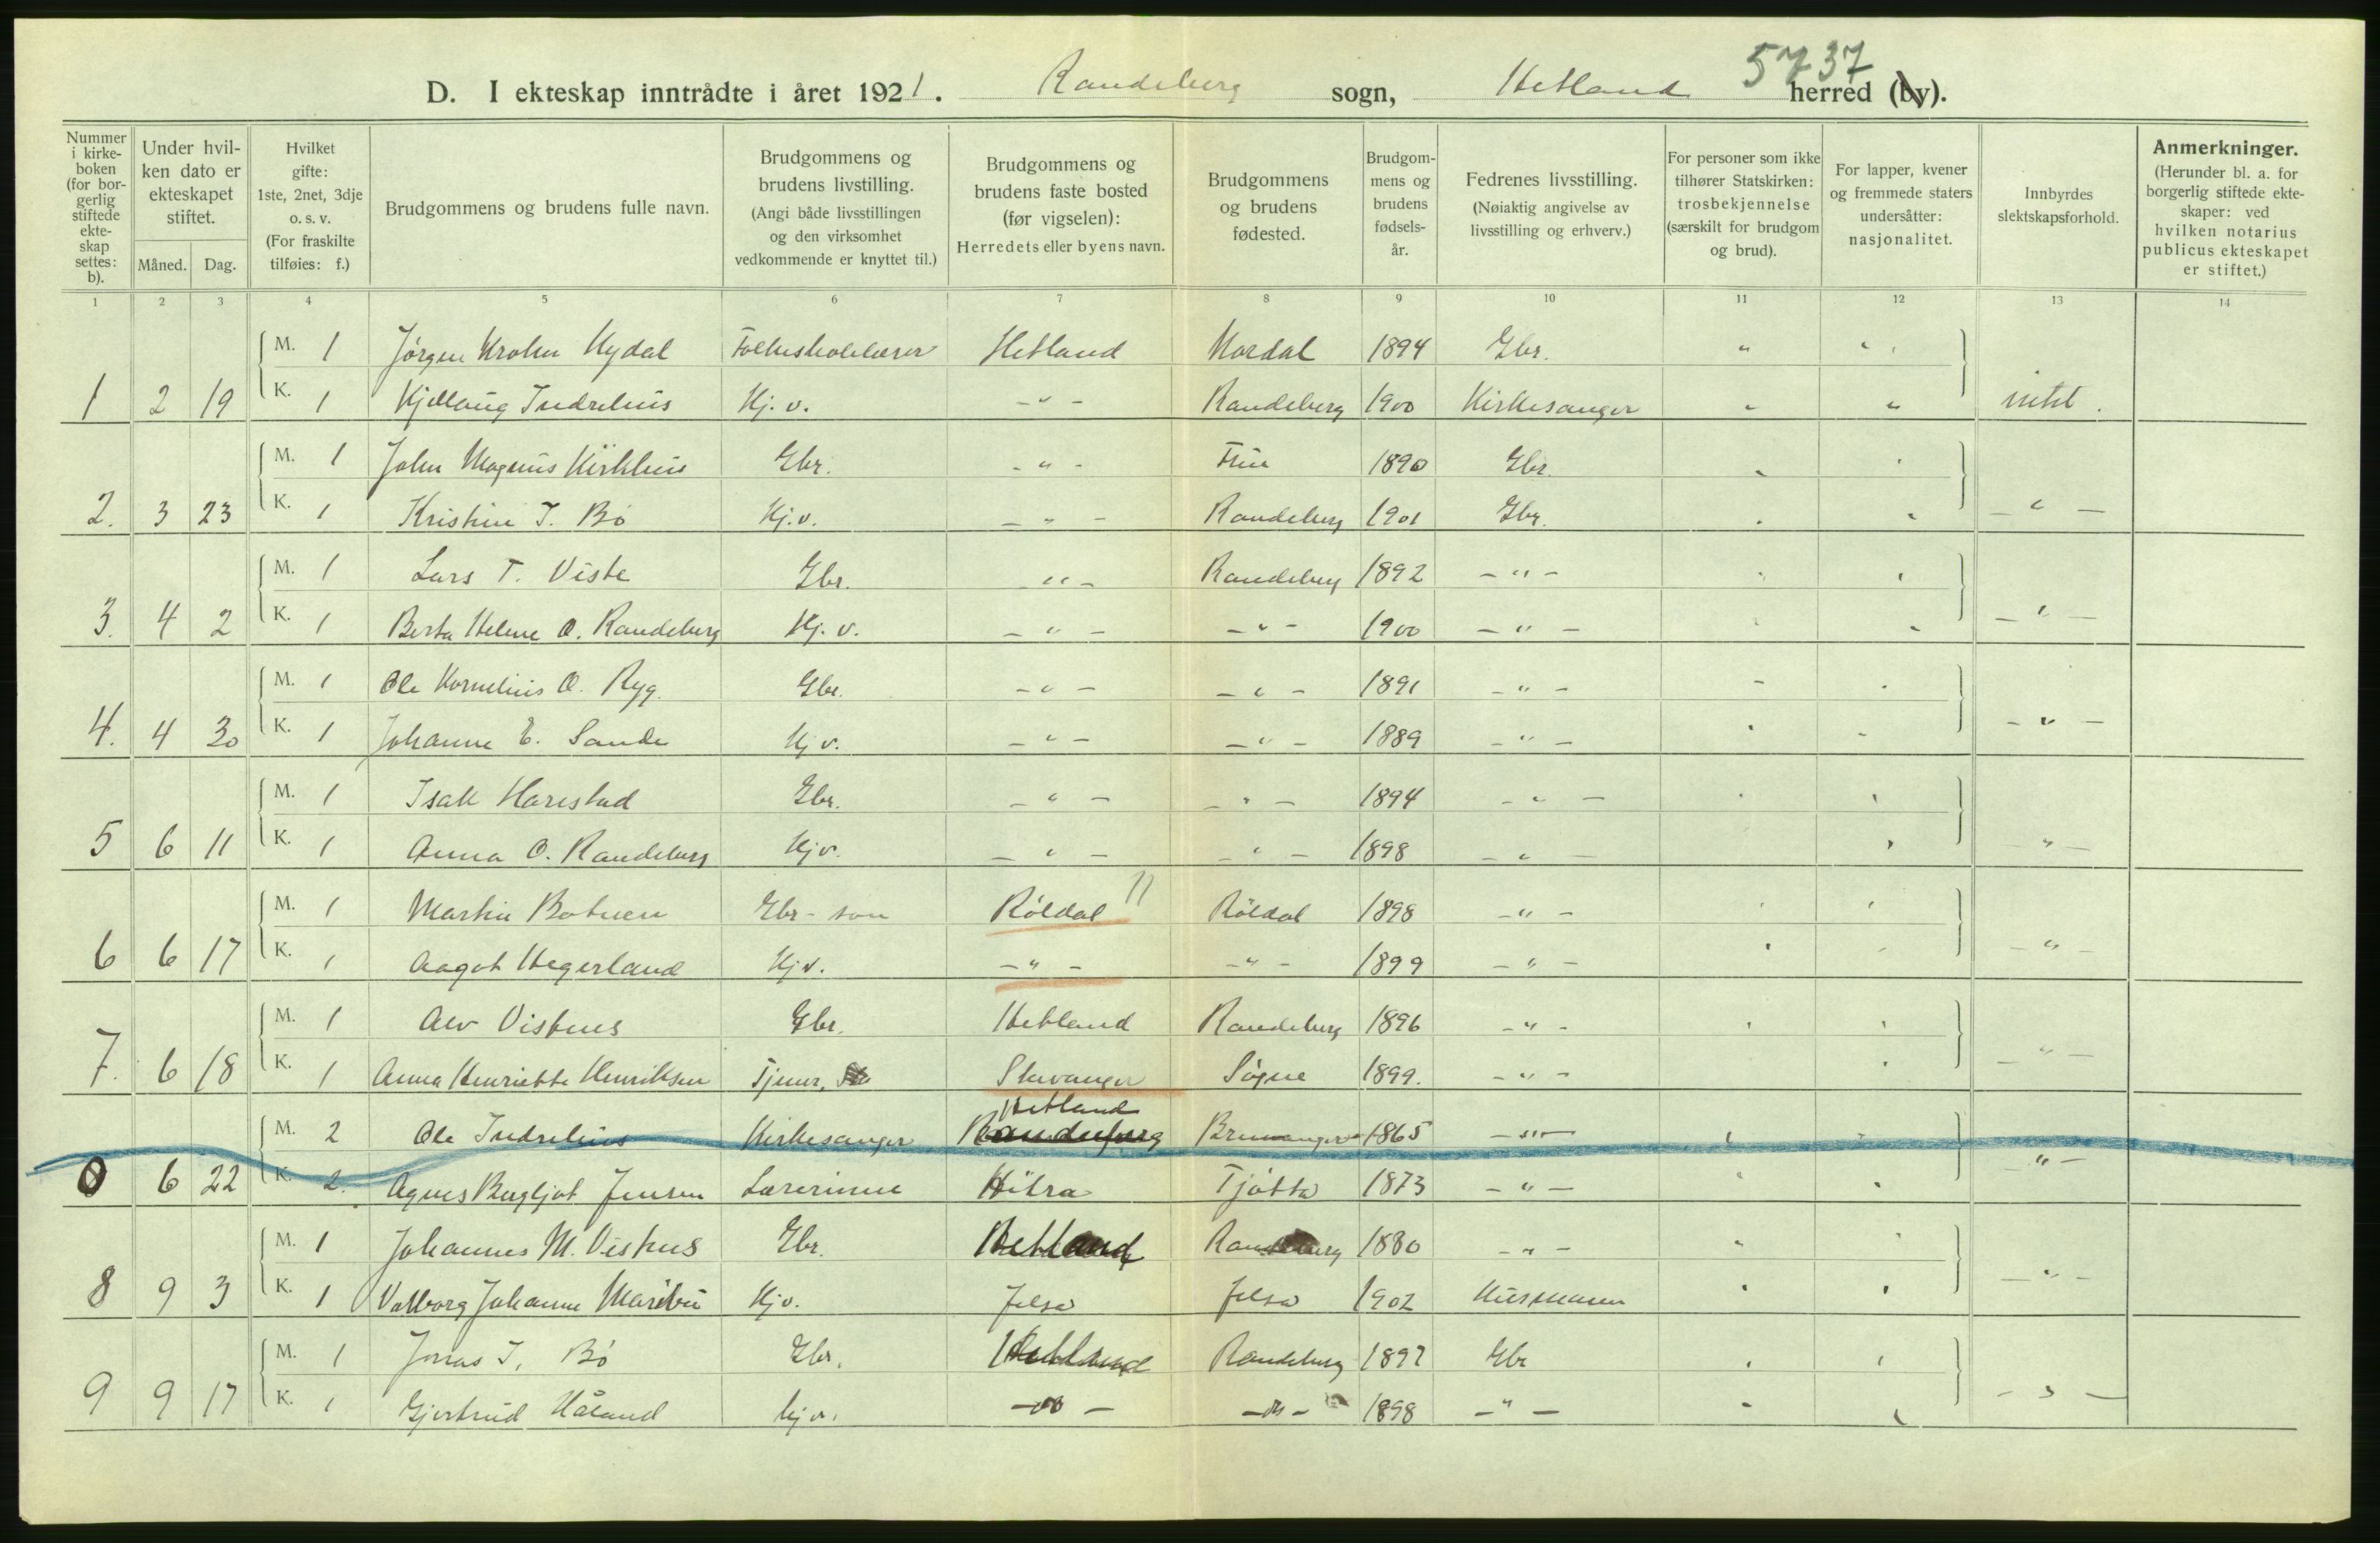 5737
D. I ekteskap inntrådte i året 1921. Randeberg sogn, Hetland herred (by).
Nummer i kirkeboken (for borgerlig stiftede ekteskap settes: b).
Under hvilken dato er ekteskapet stiftet.
Måned. Dag.
Hvilket gifte: 1ste, 2net, 3dje o. s. v. (For fraskilte tilføies: f.)
Brudgommens og brudens fulle navn.
Brudgommens og brudens livstilling. (Angi både livsstillingen og den virksomhet vedkommende er knyttet til.)
Brudgommens og brudens faste bosted (før vigselen): Herredets eller byens navn.
Brudgommens og brudens fødested.
Brudgommens og brudens fødselsår.
Fedrenes livsstilling. (Nøiaktig angivelse av livsstilling og erhverv.)
For personer som ikke tilhører Statskirken: trosbekjennelse (særskilt for brudgom og brud).
For lapper, kvener og fremmede staters undersåtter: nasjonalitet.
Innbyrdes slektskapsforhold.
Anmerkninger. (Herunder bl. a. for borgerlig stiftede ekteskaper: ved hvilken notarius publicus ekteskapet er stiftet.)
1 2 3 4 5 6 7 8 9 10 11 12 13 14
M. 1 Jørgen Krohn Nydal Folkeskolelærer Hetland 1894 Gbr. " "
1 2 19 K. 1 Kjellaug Indrehus Hj. v. - " - Randeberg 1900 Kirkesanger " " intet.
M. 1 John Magnus Kirkhus Gbr. - " - 1890 Gbr. " "
2. 3 23 K. 1 Kristine T. Bø Hj. v. - " - Randeberg 1901 Gbr. " " - " -
M. 1 Lars T. Viste Gbr. - " - Randeberg 1892 - " - " "
3. 4 2 K. 1 Berta Helene O. Randeberg Hj. v. - " - - " - 1900 - " - " " - " -
M. 1 Ole Kornelius O. Ryg. Gbr. - " - - " - 1891 - " - " "
4. 4 30 K. 1 Johanne E. Sande Hj v. - " - - " - 1889 - " - " " - " -
M. 1 Isak Harestad Gbr. - " - - " - 1894 - " - " "
5 6 11 K. 1 Anna O. Randeberg Hj v. - " - - " - 1898 - " - " " - " -
M. 1 Martin Botnen Gbr - søn Røldal 11 Røldal 1898 - " - " "
6 6 17 K. 1 Aagot Hegerland Hj v. - " - - " - 1899 - " - " " - " -
M. 1 Alv Vistnes Gbr. Hetland Randeberg 1896 - " - " "
7. 6 18 K. 1 Anna Henriette Henriksen Tjener, Stavanger Søgne 1899. - " - " - " -
Hetland
M. 2 Ole Indrehus Kirkesanger Randeberg Bremanger 1865 - " - " "
0 6 22 K. 2. Agnes Bergljot Jensen Lærerinne Hitra Tjøtta 1873 - " - " " - " -
M. 1 Johannes M. Vistnes Gbr. Hetland Randeberg 1880 - " - " "
8 9 3 K. 1 Valborg Johanne Maribu Hj v. Jelsa Jelsa 1902 Husmann " " - " -
M. 1 Jonas T. Bø Gbr. Hetland Randeberg 1897 Gbr " "
9 9 17 K. 1 Gjertrud Håland hj v. - " - - " - 1898 - " - " " - " -